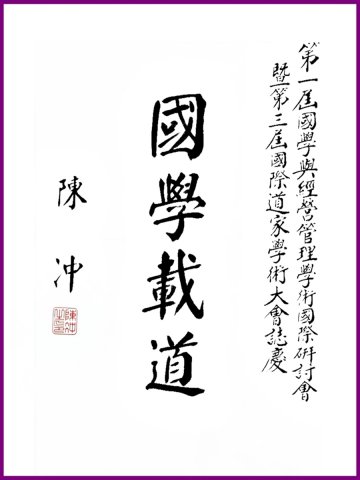 第一屆國學與經營管理學術國際研討會
暨第三屆國際道家學術大會誌慶
國學載道
陳冲